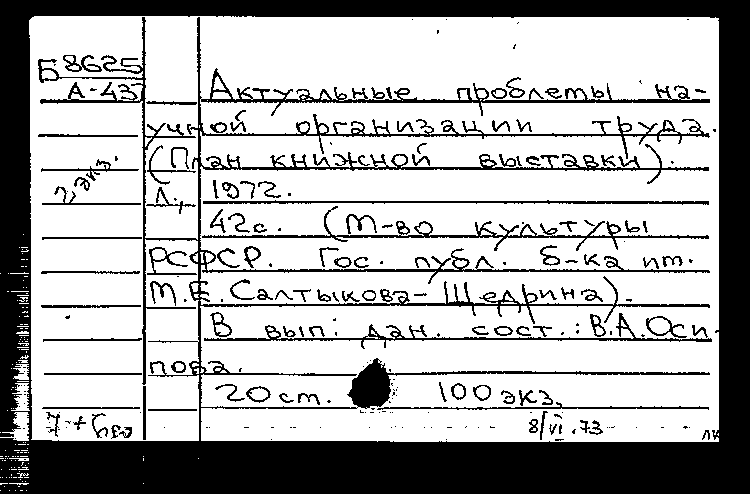 Б 8625
А-437
Актуальные проблемы на-
учной организации труда.
(План книжной выставки).
2 экз.
Л., 1972.
42с. (М-во культуры
РСФСР. Гос. публ. б-ка им.
М.Е. Салтыкова-Щедрина).
В вып. дан. сост.: В.А.Оси-
пова.
20 ст. 100 экз.
8/VI.73